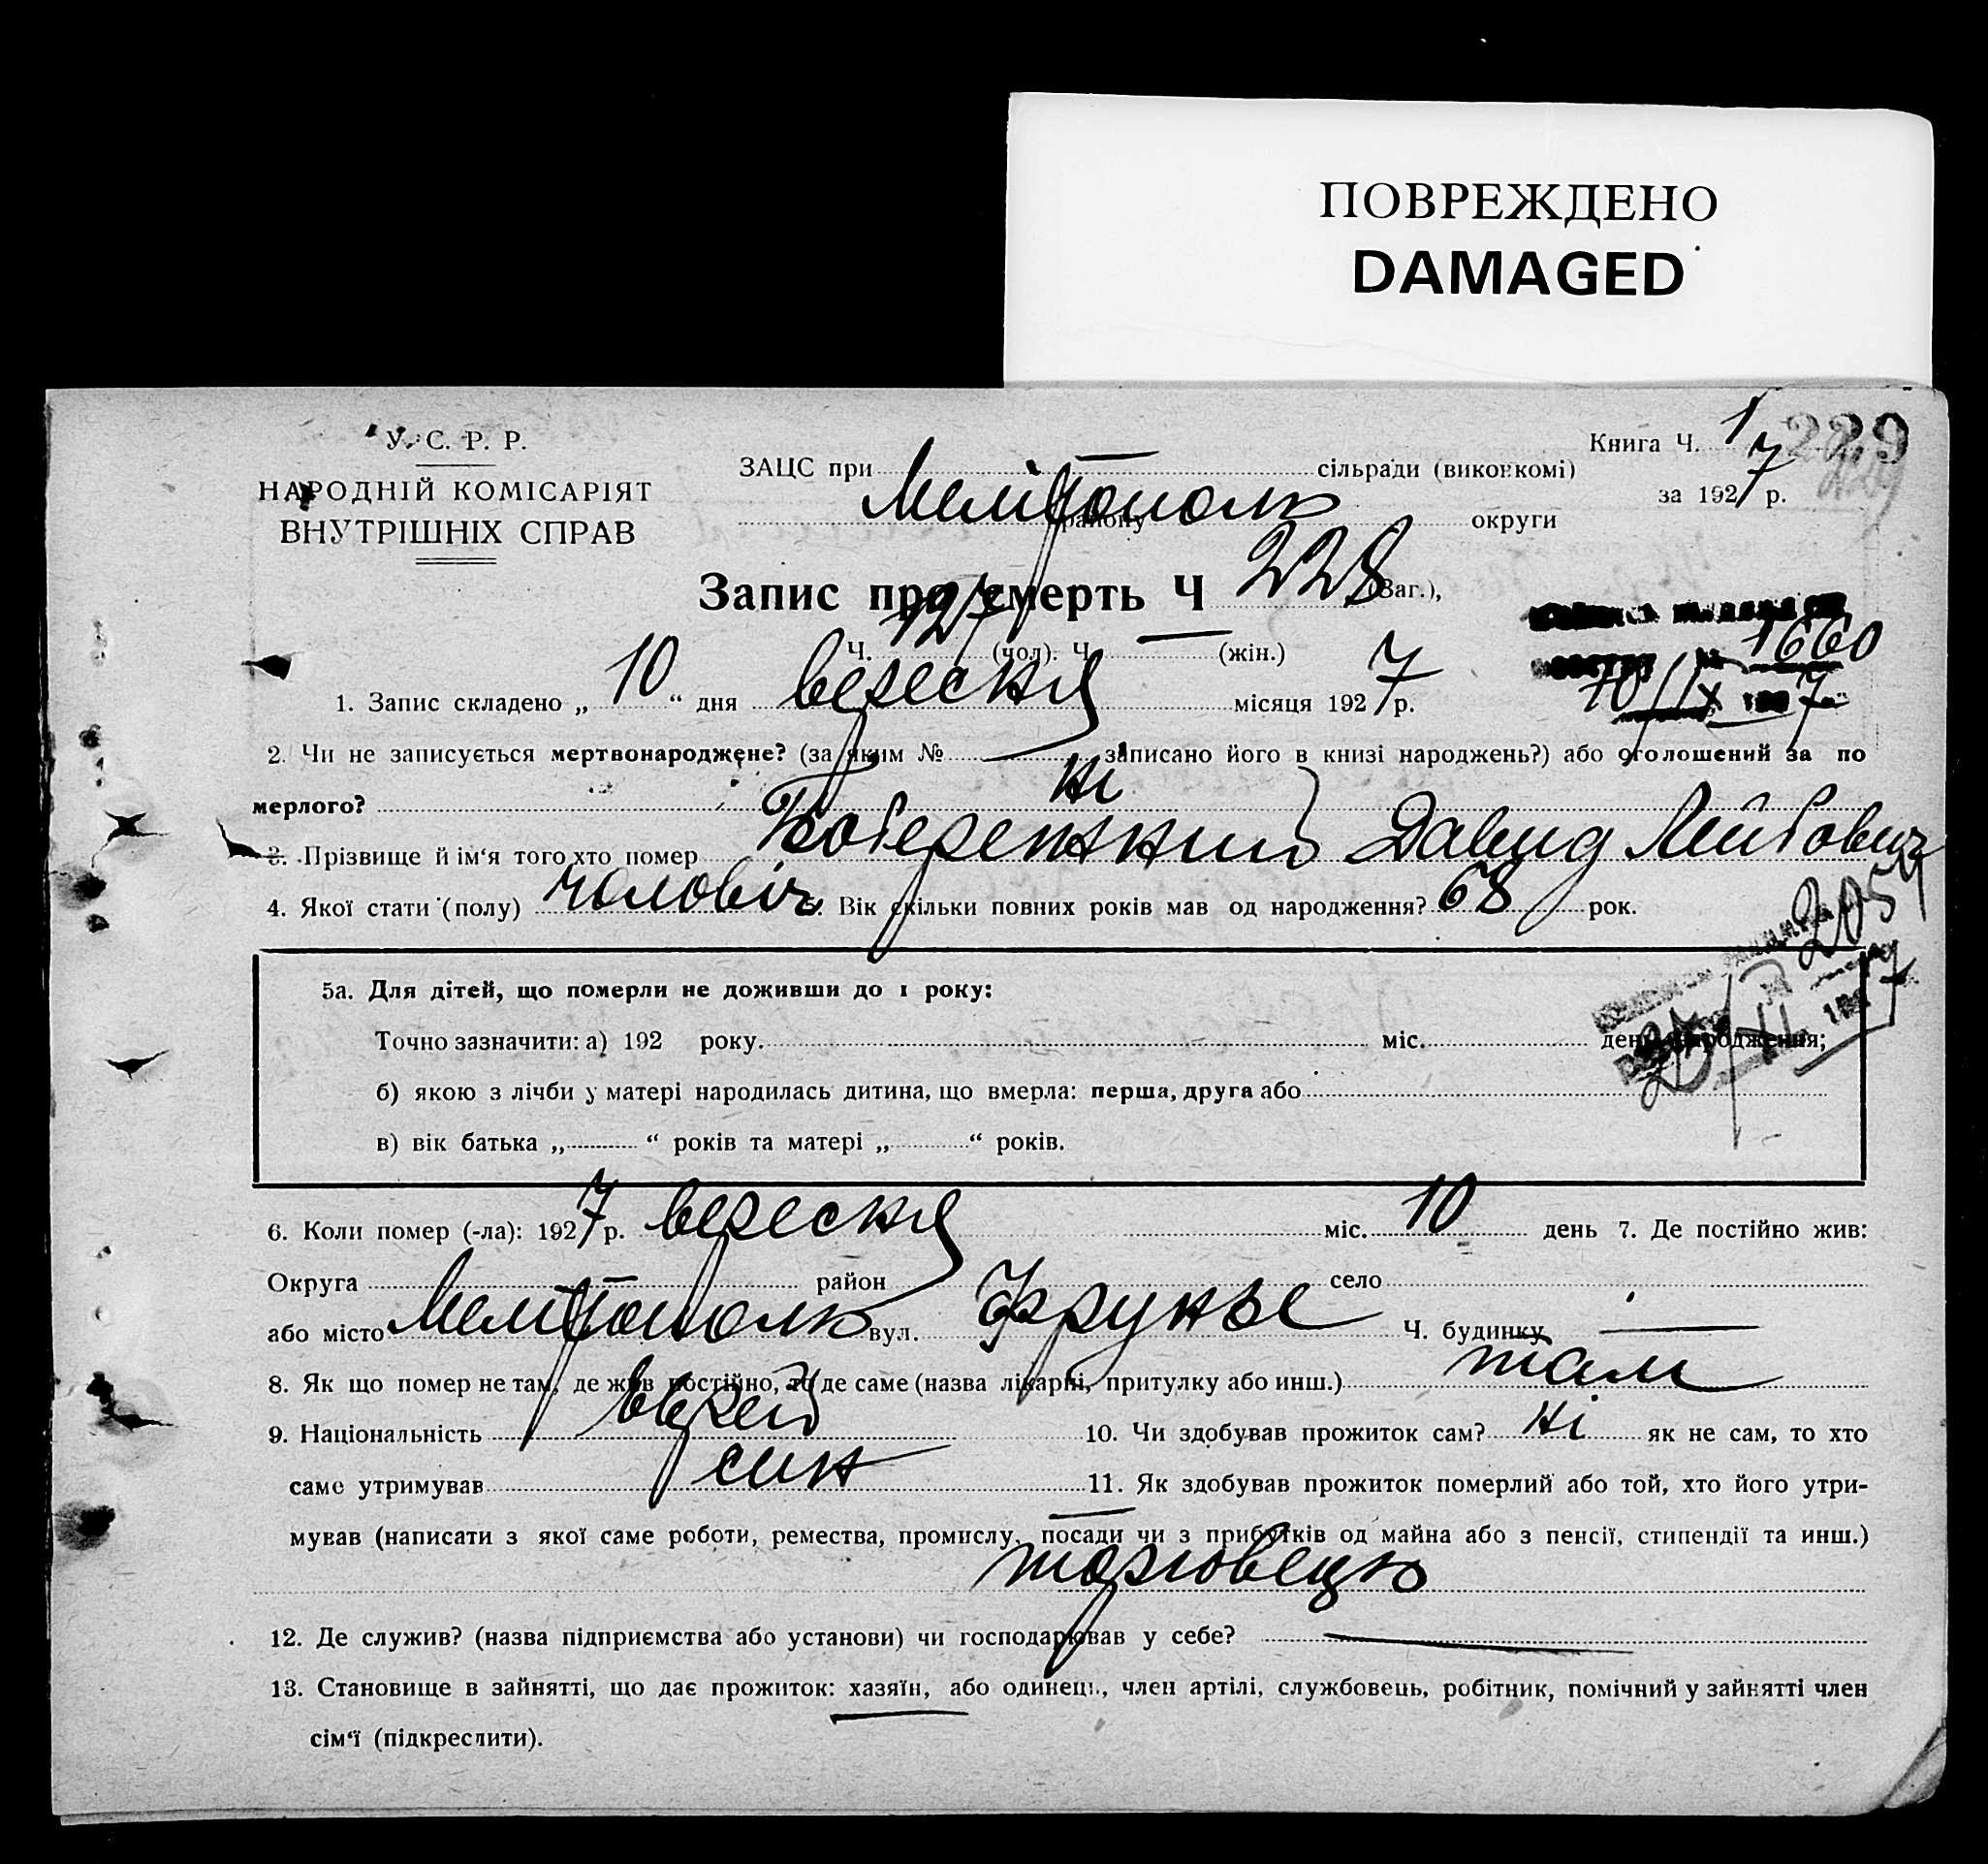 ПОВРЕЖДЕНО
DAMAGED
У. С. Р. Р.
НАРОДНІЙ КОМІСАРІЯТ
ВНУТРІШНІХ СПРАВ
Книга Ч. 1
229
за 1927 р.
ЗАЦС при — сільради (виконкомі)
Мелітополь району округи
Запис про смерть Ч 228 (Заг.),
Ч. 127 (чол). Ч — (жін.)
1660
10/IX 1927
1. Запис складено „ 10 “ дня вересня місяця 1927 р.
2. Чи не записується мертвонароджене? (за яким № — записано його в книзі народжень?) або оголошений за по
мерлого? Ні
3. Прізвище й ім‘я того хто помер Давид Лейбович
4. Якої стати (полу) чоловіч. Вік скільки повних років мав од народження? 68 рок.
2054
5а. Для дітей, що померли не доживши до 1 року:
Точно зазначити: а) 192 року. міс. день народження;
б) якою з лічби у матері народилась дитина, що вмерла: перша, друга або
в) вік батька „ “ років та матері „ “ років.
6. Коли помер (-ла): 1927 р. вересня міс. 10 день 7. Де постійно жив:
Округа — район село
або місто Мелітополь вул. Фрунзе Ч. будинку —
8. Як що помер не там, де жив постійно, то де саме (назва лікарні, притулку або инш.) там
9. Національність еврей 10. Чи здобував прожиток сам? Ні як не сам, то хто
саме утримував син 11. Як здобував прожиток померлий або той, хто його утри-
мував (написати з якої саме роботи, ремества, промислу, посади чи з прибутків од майна або з пенсії, стипендії та инш.)
торговець
12. Де служив? (назва підприємства або установи) чи господарював у себе? —
13. Становище в зайнятті, що дає прожиток: хазяїн, або одинець, член артілі, службовець, робітник, помічний у зайнятті член
сім‘ї (підкреслити).